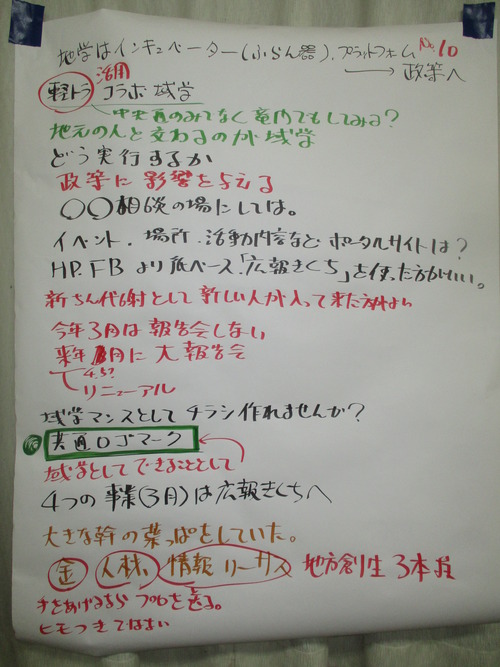 地学はインキュベーター(ふらん器)、プラットフォーム No.10
→ 政策へ
活用
軽トラ コラボ 域学
中央通のみでなく竜門でもしてみる?
地元の人と交わるのが域学
どう実行するか
政策に影響を与える
〇〇相談の場にしては。
イベント、場所、活動内容など ポータルサイトは?
HP.FBより紙ベース「広報きくち」を使った方がいい。
新ちん代謝として新しい人が入って来た方がよい
今年3月は報告会しない
来年 月に大報告会
リニューアル
域学マンスとしてチラシ作れませんか?
共通ロゴマーク
域学としてできることとして
4つの事業(3月)は広報きくちへ
大きな幹の葉っぱをしていた。
金 人材、情報リーサス 地方創生3本
手をあげるなら プロを送る。
ヒモつきではない